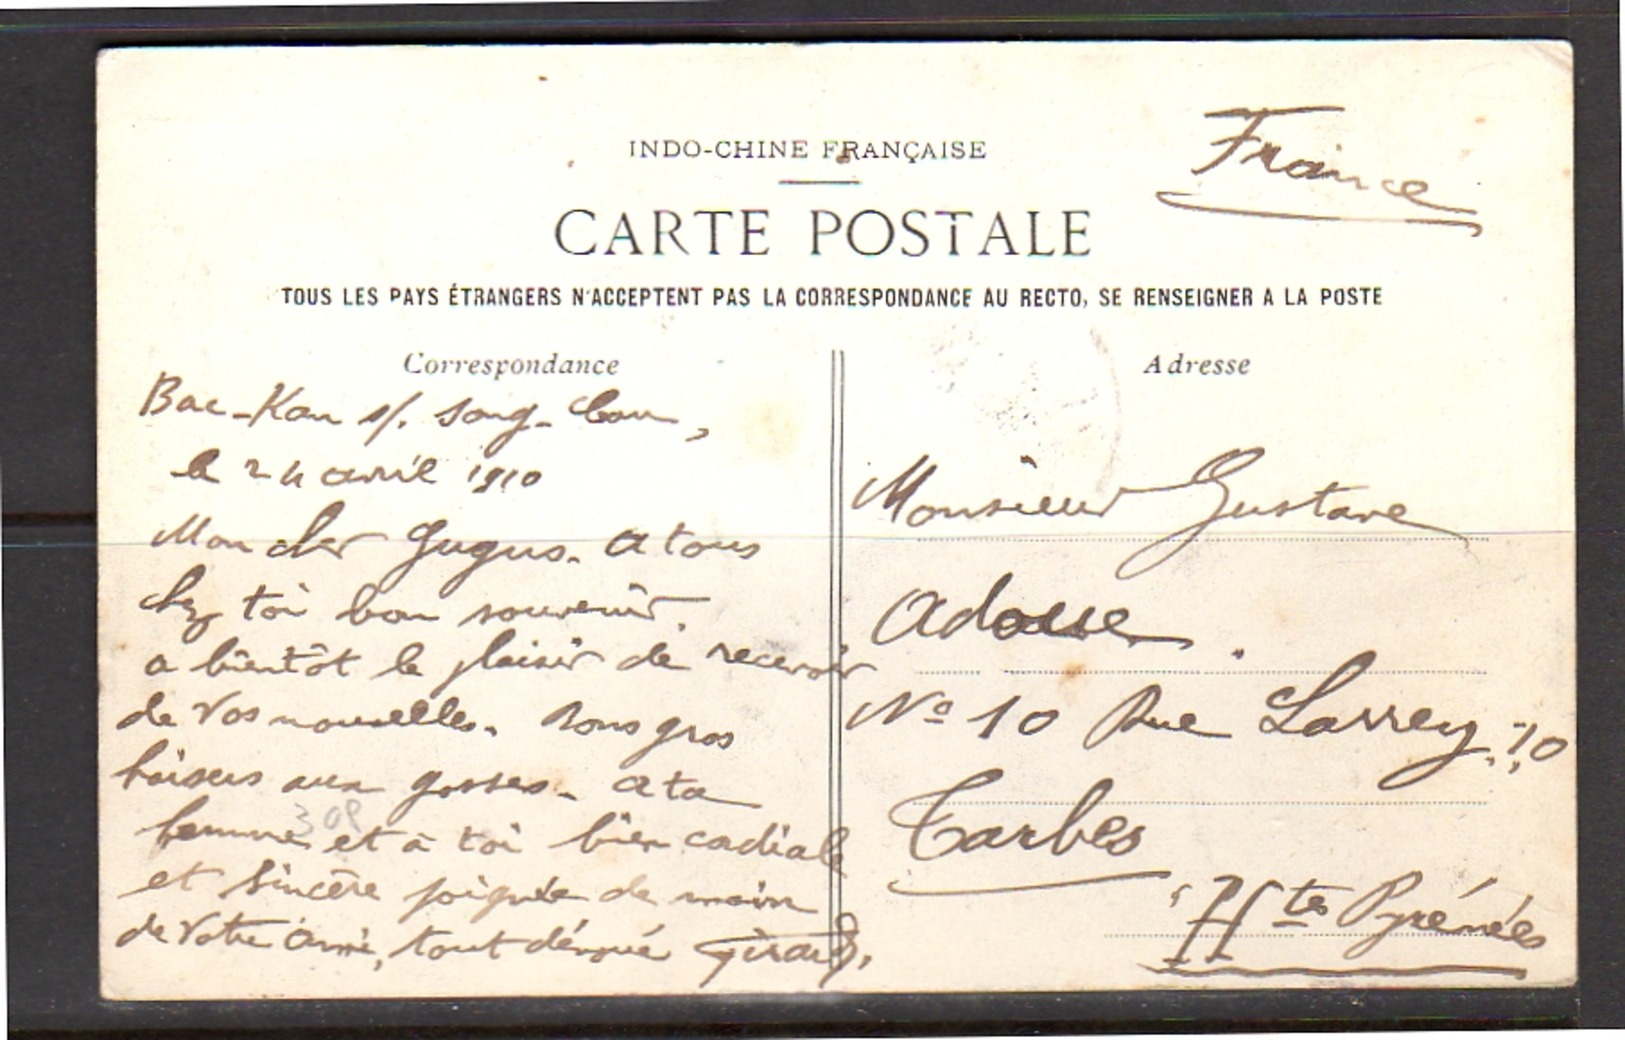 INDO-CHINE FRANÇAISE
France
CARTE POSTALE
TOUS LES PAYS ÉTRANGERS N'ACCEPTENT PAS LA CORRESPONDANCE AU RECTO, SE RENSEIGNER A LA POSTE
Correspondance
Bac-Kan s/. Song-Cau,
le 24 avril 1910
Mon cher Gugus. A tous
chez toi bon souvenir.
a bientôt le plaisir de recevoir
de vos nouvelles. Bons gros
baisers aux gosses. A ta
femme et à toi bien cordiale
et sincère poignée de main
de votre ami, tout dévoué Girard.
309
Adresse
Monsieur Gustave
Adoue.
No 10 Rue Larrey. 10
Tarbes
Htes Pyrénées